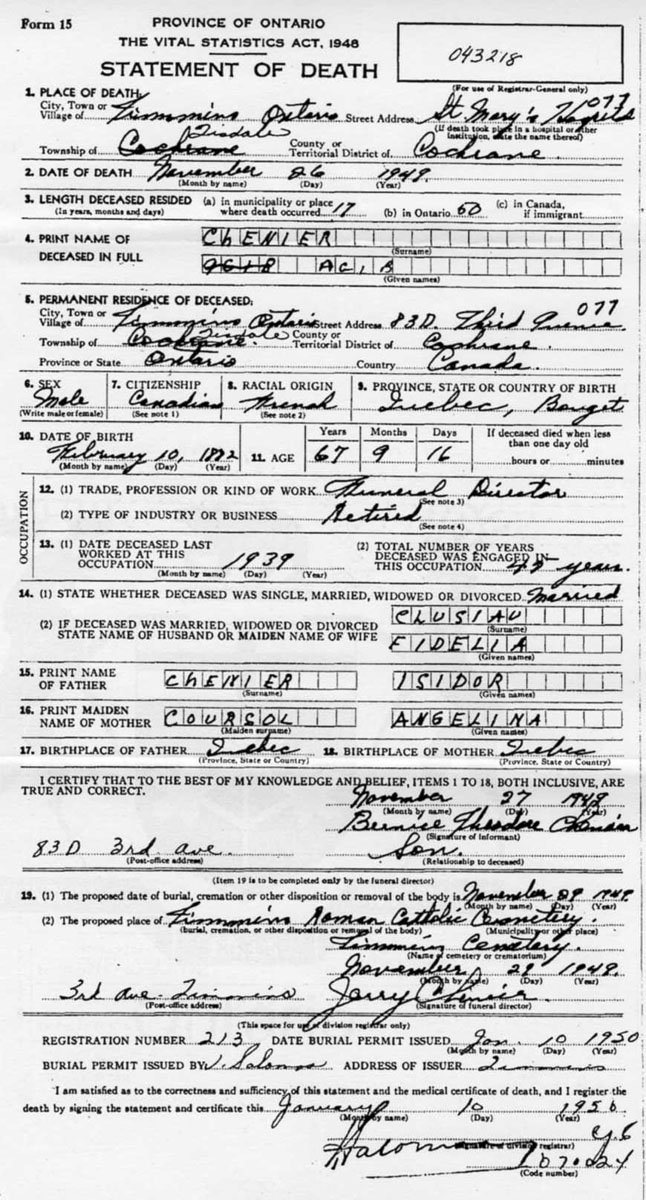 Form 15
PROVINCE OF ONTARIO
THE VITAL STATISTICS ACT, 1948
STATEMENT OF DEATH
043218
(For use of Registrar-General only)
1. PLACE OF DEATH:
077
City, Town or Village of Timmins Ontario Street Address St Mary's
(If death took place in a hospital or other institution, state the name thereof)
Tisdale
Township of Cochrane County or Territorial District of Cochrane.
2. DATE OF DEATH November 26 1949.
(Month by name) (Day) (Year)
3. LENGTH DECEASED RESIDED (In years, months and days) (a) in municipality or place where death occurred 17 (b) in Ontario 60 (c) in Canada, if immigrant
4. PRINT NAME OF DECEASED IN FULL
CHENIER
(Surname)
ACIB
(Given names)
5. PERMANENT RESIDENCE OF DECEASED:
077
City, Town or Village of Timmins Ontario Street Address 83D. Third Avenue
Tisdale
Township of Cochrane. County or Territorial District of Cochrane.
Province or State Ontario Country Canada.
6. SEX 7. CITIZENSHIP 8. RACIAL ORIGIN 9. PROVINCE, STATE OR COUNTRY OF BIRTH
Male Canadian French Quebec, Bouget
(Write male or female) (See note 1) (See note 2)
10. DATE OF BIRTH
February 10, 1882
(Month by name) (Day) (Year)
11. AGE
Years Months Days
67 9 16
If deceased died when less than one day old
hours or minutes
OCCUPATION
12. (1) TRADE, PROFESSION OR KIND OF WORK Funeral Director
(See note 3)
(2) TYPE OF INDUSTRY OR BUSINESS Retired
(See note 4)
13. (1) DATE DECEASED LAST WORKED AT THIS OCCUPATION 1939
(Month by name) (Day) (Year)
(2) TOTAL NUMBER OF YEARS DECEASED WAS ENGAGED IN THIS OCCUPATION years.
14. (1) STATE WHETHER DECEASED WAS SINGLE, MARRIED, WIDOWED OR DIVORCED. Married
(2) IF DECEASED WAS MARRIED, WIDOWED OR DIVORCED STATE NAME OF HUSBAND OR MAIDEN NAME OF WIFE
CLUSIAU
(Surname)
FIDELIA
(Given names)
15. PRINT NAME OF FATHER CHENIER ISIDOR
(Surname) (Given names)
16. PRINT MAIDEN NAME OF MOTHER COURSOL ANGELINA
(Maiden surname) (Given names)
17. BIRTHPLACE OF FATHER Quebec 18. BIRTHPLACE OF MOTHER Quebec
(Province, State or Country) (Province, State or Country)
I CERTIFY THAT TO THE BEST OF MY KNOWLEDGE AND BELIEF, ITEMS 1 TO 18, BOTH INCLUSIVE, ARE TRUE AND CORRECT.
November 27 1949
(Month by name) (Day) (Year)
Bernice Theodore Chenier
(Signature of informant)
83D 3rd ave. Son.
(Post-office address) (Relationship to deceased)
(Item 19 is to be completed only by the funeral director)
19. (1) The proposed date of burial, cremation or other disposition or removal of the body is November 29 1949.
(Month by name) (Day) (Year)
(2) The proposed place of Timmins Roman Catholic Cemetery.
(burial, cremation, or other disposition or removal of the body) (Municipality or other place)
Timmins Cemetery.
(Name of cemetery or crematorium)
November 29 1949.
(Month by name) (Day) (Year)
3rd Ave. Timmins Jerry Chenier
(Post-office address) (Signature of funeral director)
(This space for use of division registrar only)
REGISTRATION NUMBER 213 DATE BURIAL PERMIT ISSUED Jan. 10 1950
(Month by name) (Day) (Year)
BURIAL PERMIT ISSUED BY ADDRESS OF ISSUER Timmins
I am satisfied as to the correctness and sufficiency of this statement and the medical certificate of death, and I register the death by signing the statement and certificate this January 10 1950
(Month by name) (Day) (Year)
(Signature of division registrar)
107024
(Code number)